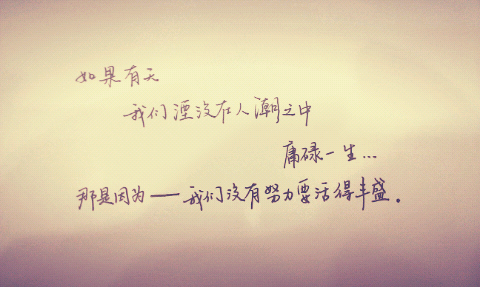 如果有天
我们湮没在人潮之中
庸碌一生...
那是因为——我们没有努力要活得丰盛.